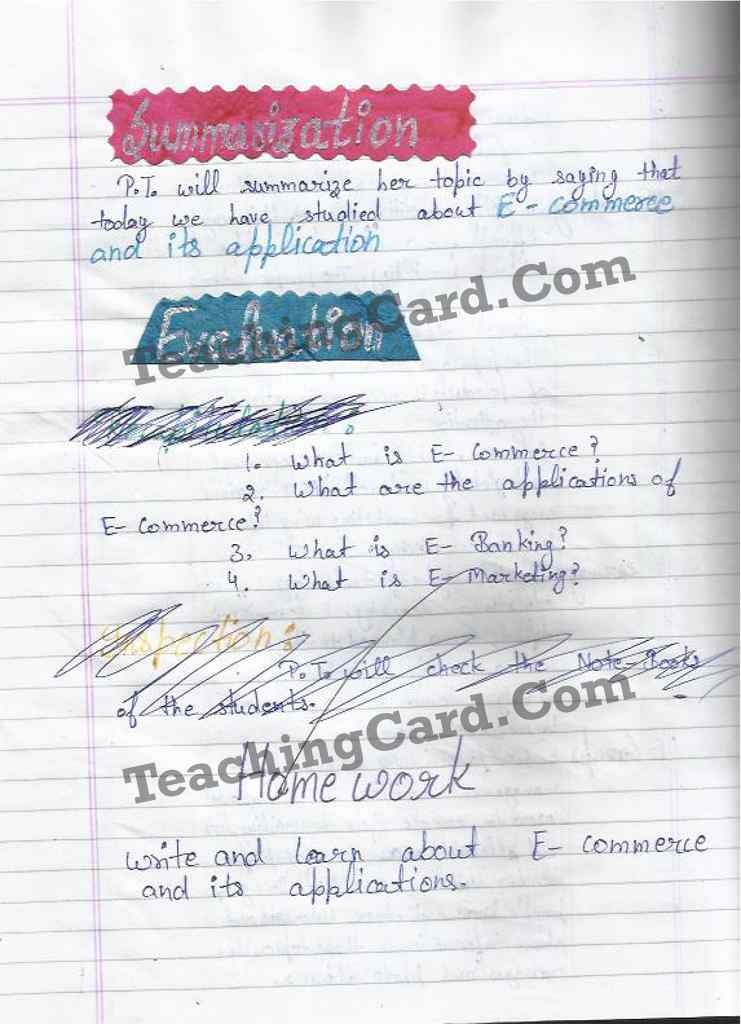 Summarization
P.T. will summarize her topic by saying that
today we have studied about E-commerce
and its application
TeachingCard.Com
Evaluation
1. What is E-Commerce?
2. What are the applications of
E-Commerce?
3. What is E-Banking?
4. What is E-Marketing?
Inspection:
P.T. will check the Note-Books
of the students.
TeachingCard.Com
Home work
Write and learn about E-commerce
and its applications.